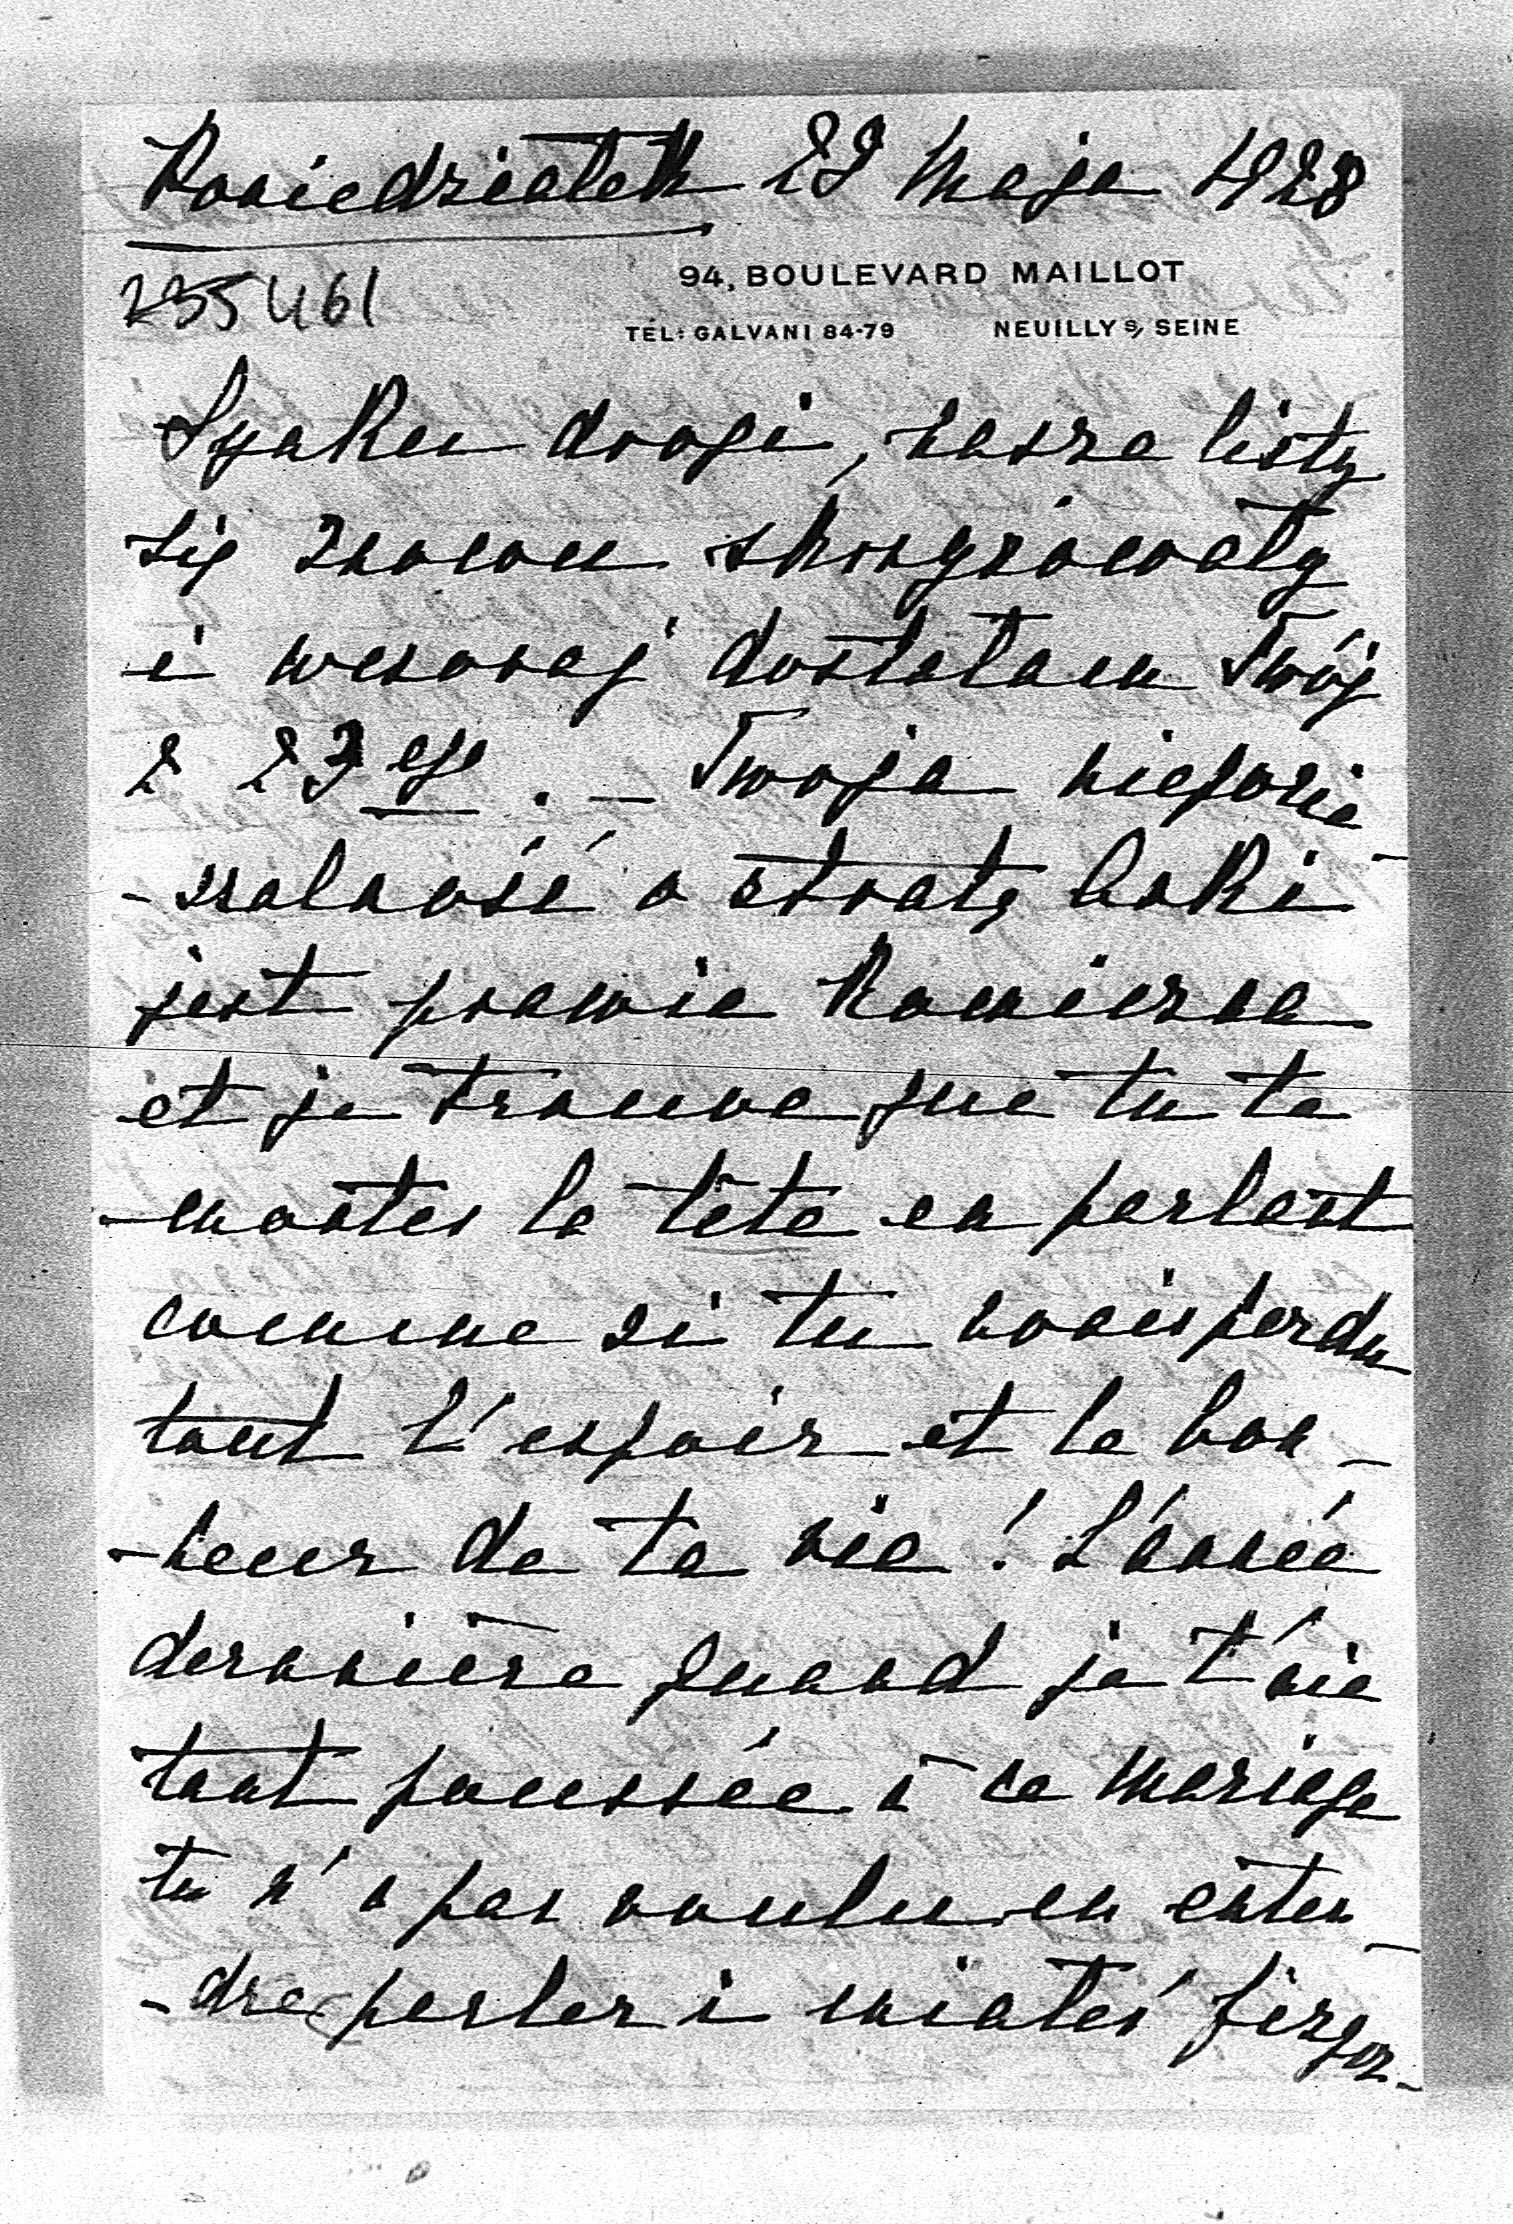 Poniedziałek 29 Maja 1928
235461
94, BOULEVARD MAILLOT
TÉL: GALVANI 84-79 NEUILLY S/ SEINE
Synku drogi, nasze listy
się znowu skrzyżowały
i wczoraj dostałam Twój
z 23go. – Twoja niepocie-
-szalność o stratę Loki
jest prawie komiczna
et je trouve que tu te
montes la tête en parlant
comme si tu avais perdu
tout l'espoir et le bon-
-heur de ta vie! L'année
dernière quand je t'ai
tant poussée à ce mariage
tu n'a pas voulu en enten-
-dre parler i miałeś